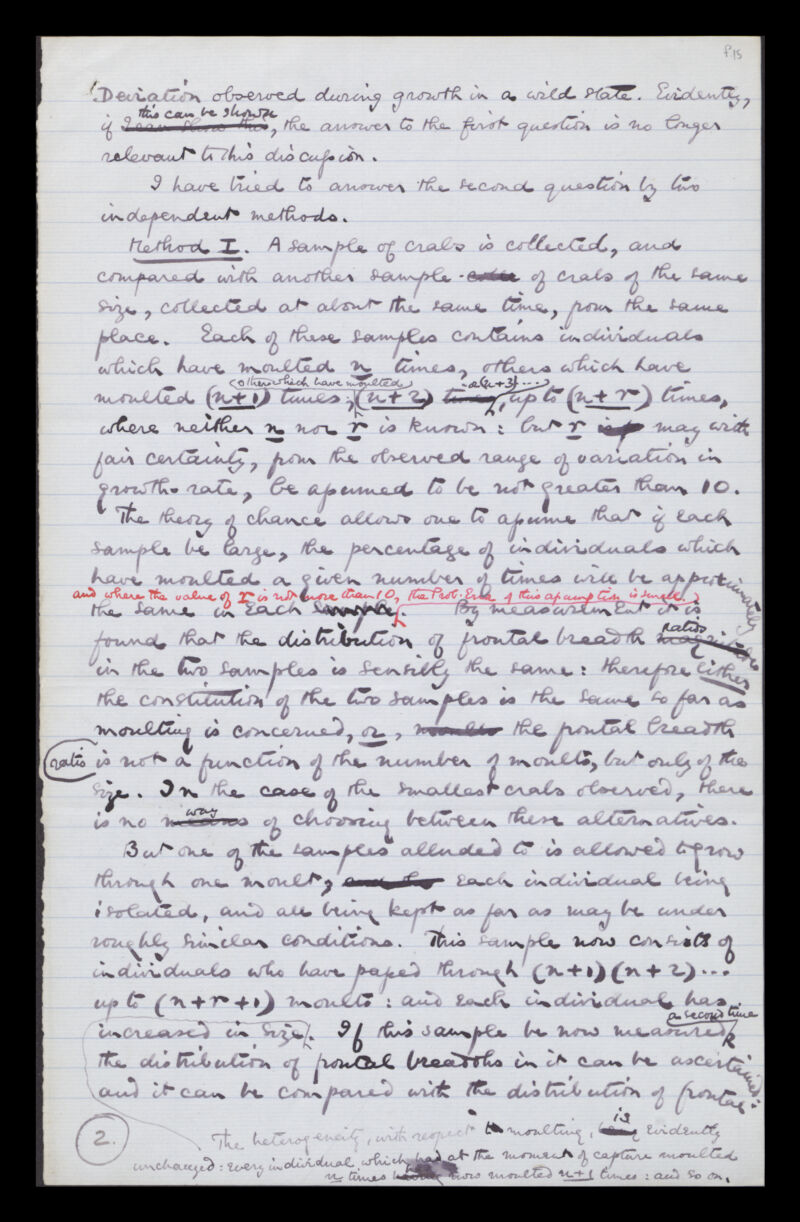 p.15
Deviation observed during growth in a wild state. Evidently,
this can be shown
if I can show this, the answer to the first question is no longer
relevant to this discussion.
I have tried to answer the second question by two
independent methods.
Method I. A sample of crabs is collected, and
compared with another sample of crabs of the same
size, collected at about the same time, from the same
place. Each of these samples contains individuals
which have moulted n times, others which have
(others which have moulted) (n+3) ...
moulted (n+1) times, (n+2) times, up to (n+r) times,
where neither n nor r is known: but r is may with
fair certainty, from the observed range of variation in
growth-rate, be assumed to be not greater than 10.
The theory of chance allows one to assume that if each
sample be large, the percentage of individuals which
have moulted a given number of times will be approximately
and where the value of r is not more than 10, the Prob: Error of this assumption is small.
the same in each sample. By measurement it is
ratios
found that the distribution of frontal breadth magnitudes
in the two samples is sensibly the same: therefore either
the constitution of the two samples is the same so far as
moulting is concerned, or, the frontal breadth
ratio is not a function of the number of moults, but only of the
size. In the case of the smallest crabs observed, there
way
is no means of choosing between these alternatives.
But one of the samples alluded to is allowed to grow
through one moult, each individual being
isolated, and all being kept as far as may be under
roughly similar conditions. This sample now consists of
individuals who have passed through (n+1) (n+2) ...
up to (n+r+1) moults: and each individual has
a second time
increased in size. If this sample be now measured
the distribution of frontal breadths in it can be ascertained:
and it can be compared with the distribution of frontal
2.
The heterogeneity, with respect to moulting, is evidently
unchanged: every individual which had at the moment of capture moulted
n times has now moulted n+1 times: and so on.